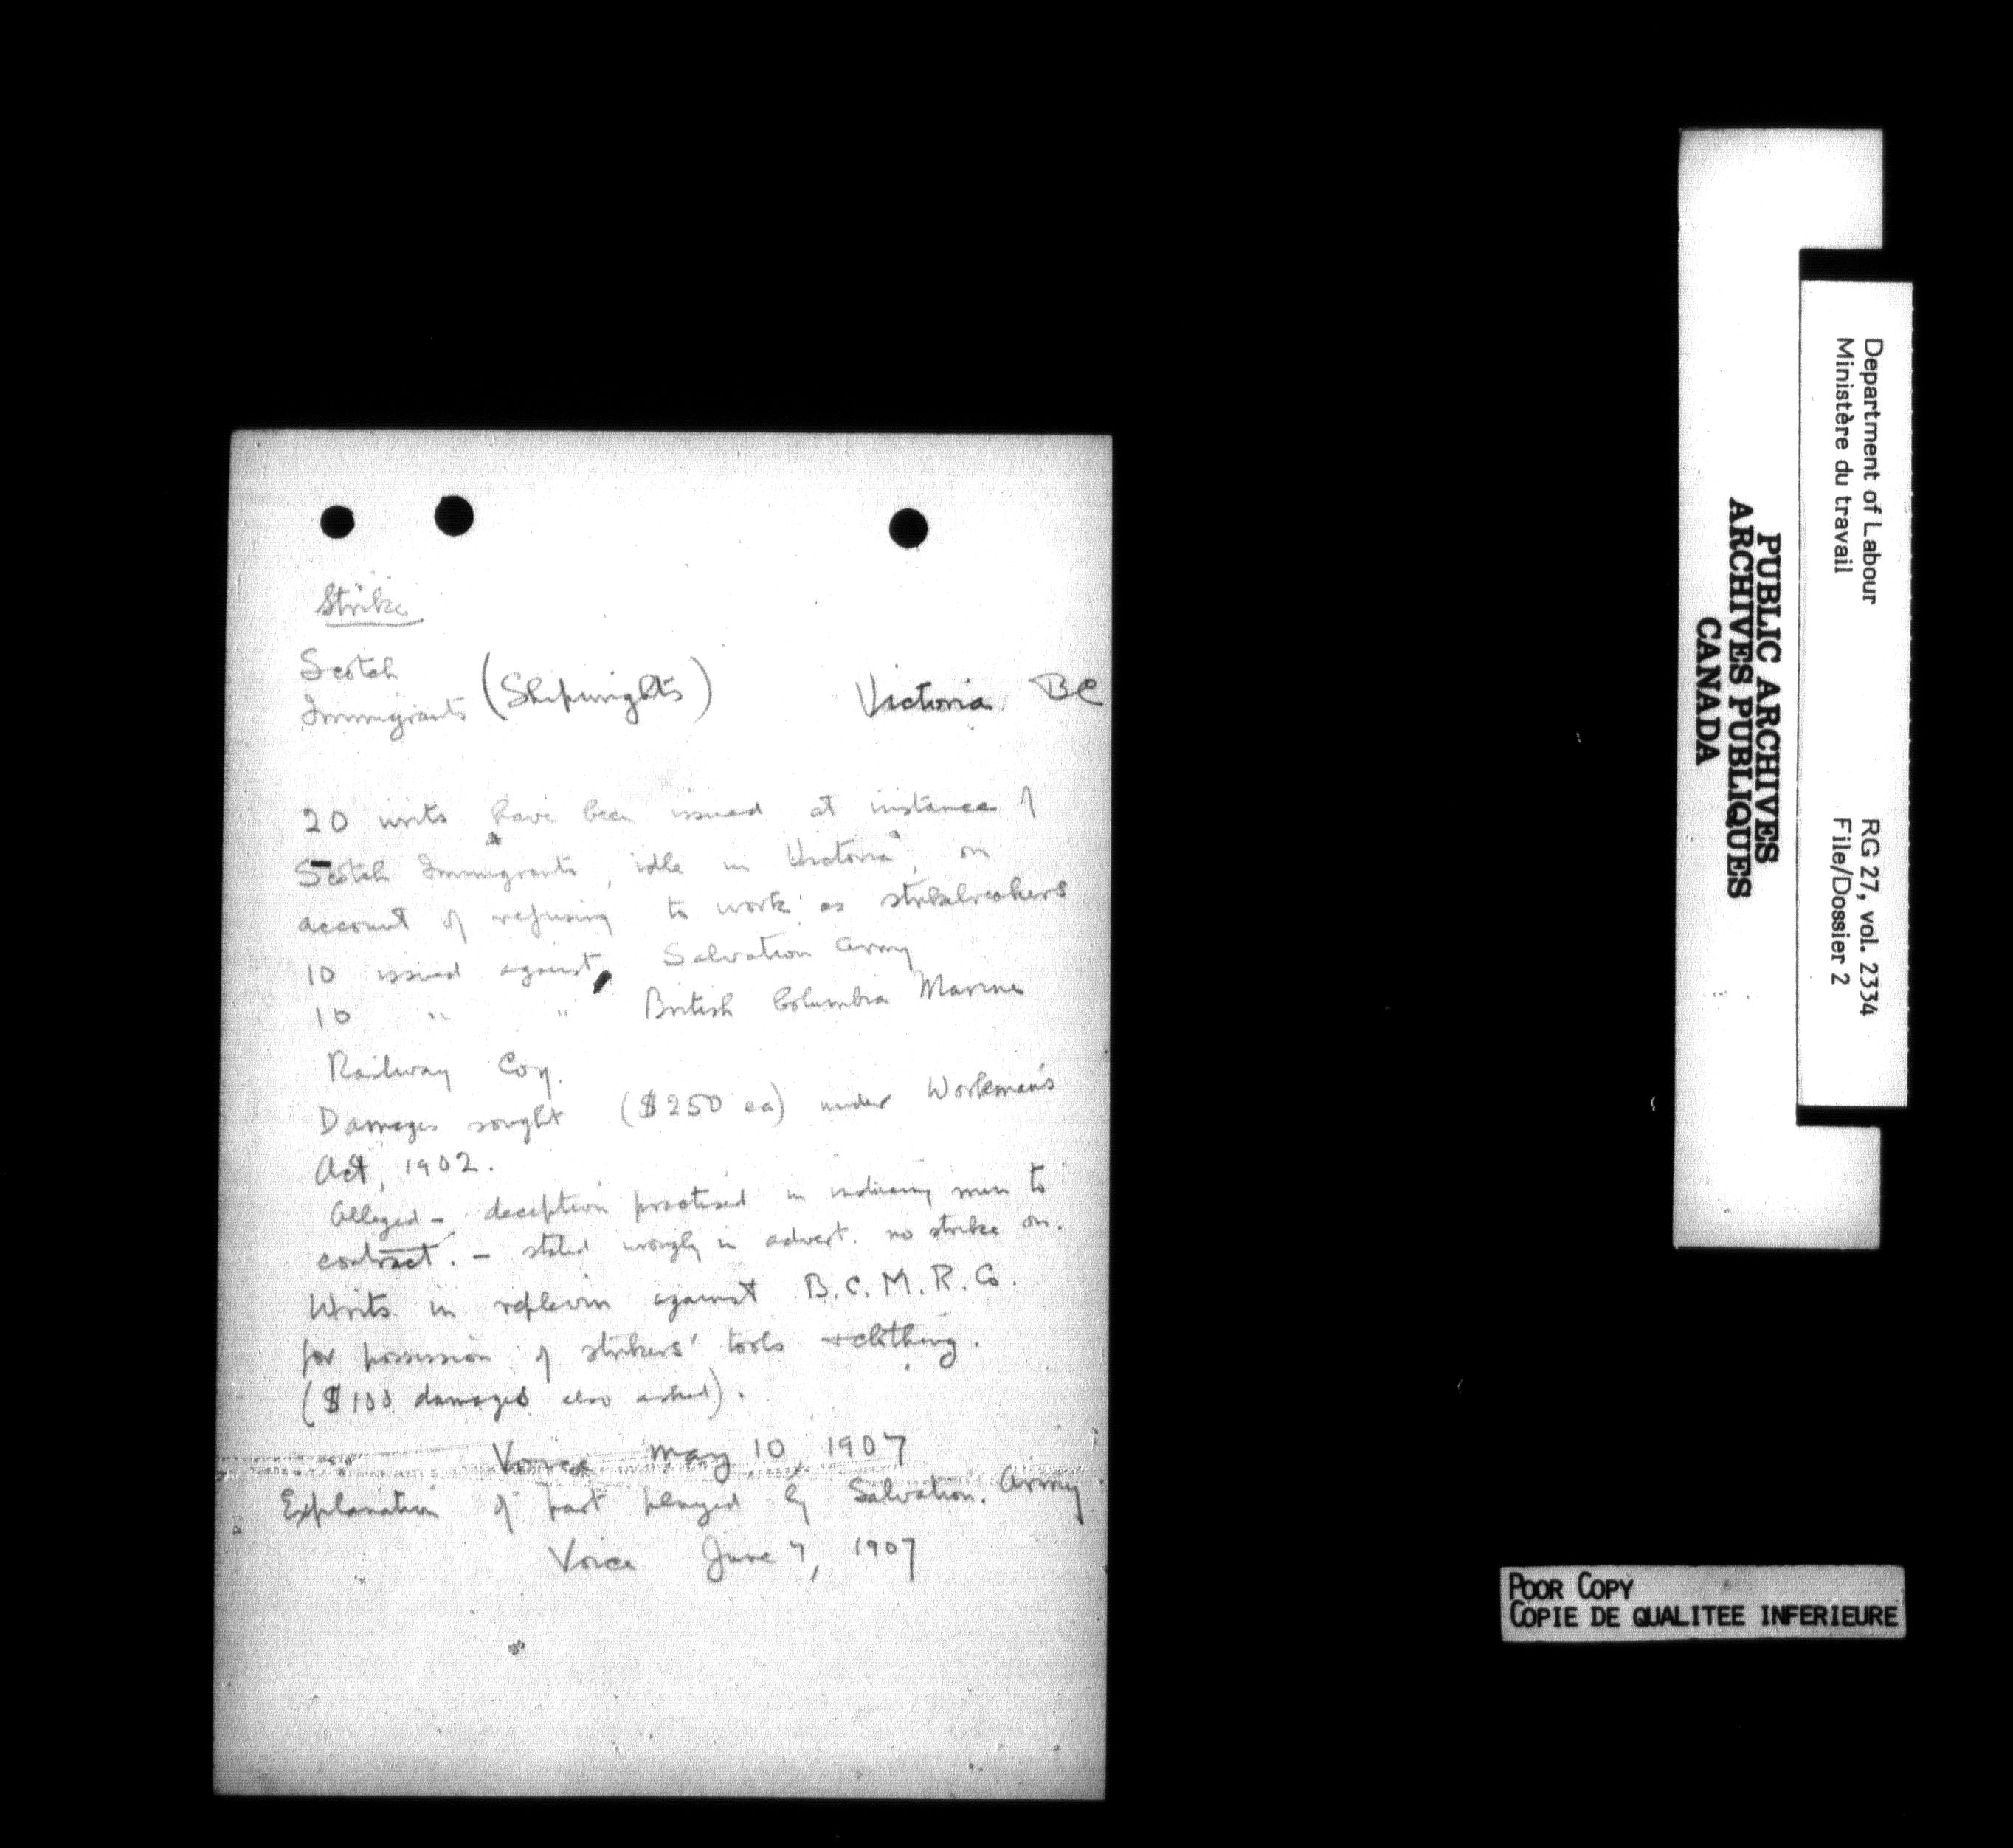 Strike
Scotch
Immigrants (Shipwrights) Victoria BC
20 writs have been issued at instance of
Scotch Immigrants, idle in Victoria, on
account of refusing to work as strikebreakers
10 issued against Salvation Army
10 " " British Columbia Marine
Railway Coy.
Damages sought ($250 ea) under Workman's
Act, 1902.
Alleged - deception practised in inducing men to
contract. - stated wrongly in advert. no strike on.
Writs in replevin against B.C.M.R.Co.
for possession of strikers' tools + clothing.
($100 damages also asked).
Voice May 10, 1907
Explanation of part played by Salvation Army
Voice June 7, 1907
Department of Labour
Ministère du travail
RG 27, vol. 2334
File/Dossier 2
PUBLIC ARCHIVES
ARCHIVES PUBLIQUES
CANADA
POOR COPY
COPIE DE QUALITEE INFERIEURE